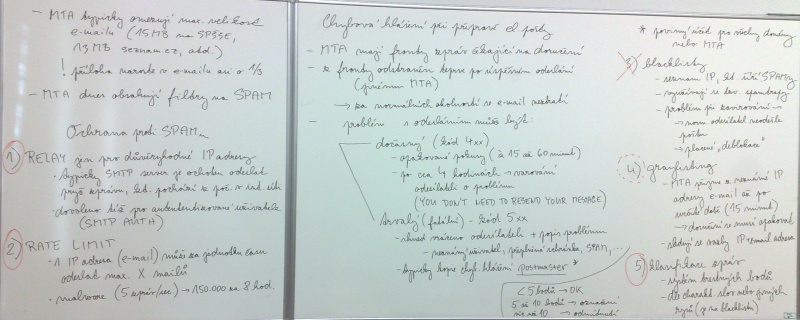 - MTA typicky omezují max. velikost
e-mailu (15MB na SPŠSE,
13MB seznam.cz, atd.)
! příloha naroste v e-mailu asi o 1/3
- MTA dnes obsahují filtry na SPAM
Ochrana proti SPAMu
1) RELAY jen pro důvěryhodné IP adresy
• typicky SMTP server je ochoten odeslat
pouze zprávu, kt. pochází z poč. v
• dovoleno též pro autentizované uživatele
(SMTP AUTH)
2) RATE LIMIT
• 1 IP adresa (e-mail) může za jednotku času
odeslat max. X mailů
• malware (5 zpráv/sec) → 150.000 za 8 hod.
Chybová hlášení při přepravě el. pošty
- MTA mají fronty zpráv čekající na doručení
- z fronty odstraněn teprve po úspěšném odeslání
(jinému MTA)
→ za normálních okolností se e-mail neztratí
- problém s odesláním může být:
dočasný (kód 4xx)
- opakované pokusy (à 15 až 60 minut)
- po cca 4 hodinách → varování
odesílateli o problému
(YOU DON'T NEED TO RESEND YOUR MESSAGE)
trvalý (fatální) - kód 5xx
- ihned vráceno odesílateli + popis problému
- neznámý uživatel, přeplněná schránka, SPAM, ...
- typicky kopie chyb. hlášení postmaster *
< 5 bodů → OK
5 až 10 bodů → označení
víc než 10 → odmítnutí
* povinný účet pro všechny domény
nebo MTA
3) blacklisty
- seznam IP, kt. šíří SPAMy
- využívají se tzv. spamtrapy
- problém při
→ norm. odesílatel neodešle
poštu
→ placené "deblokace"
4) greylisting
- MTA přijme z neznámé IP
adresy e-mail až po
určité době (15 minut)
→ doručení se musí opakovat
- sledují se vazby IP ↔ email adresa
5) klasifikace zpráv
- systém trestných bodů
- dle charakt. slov nebo jiných
rysů (je na blacklistu)